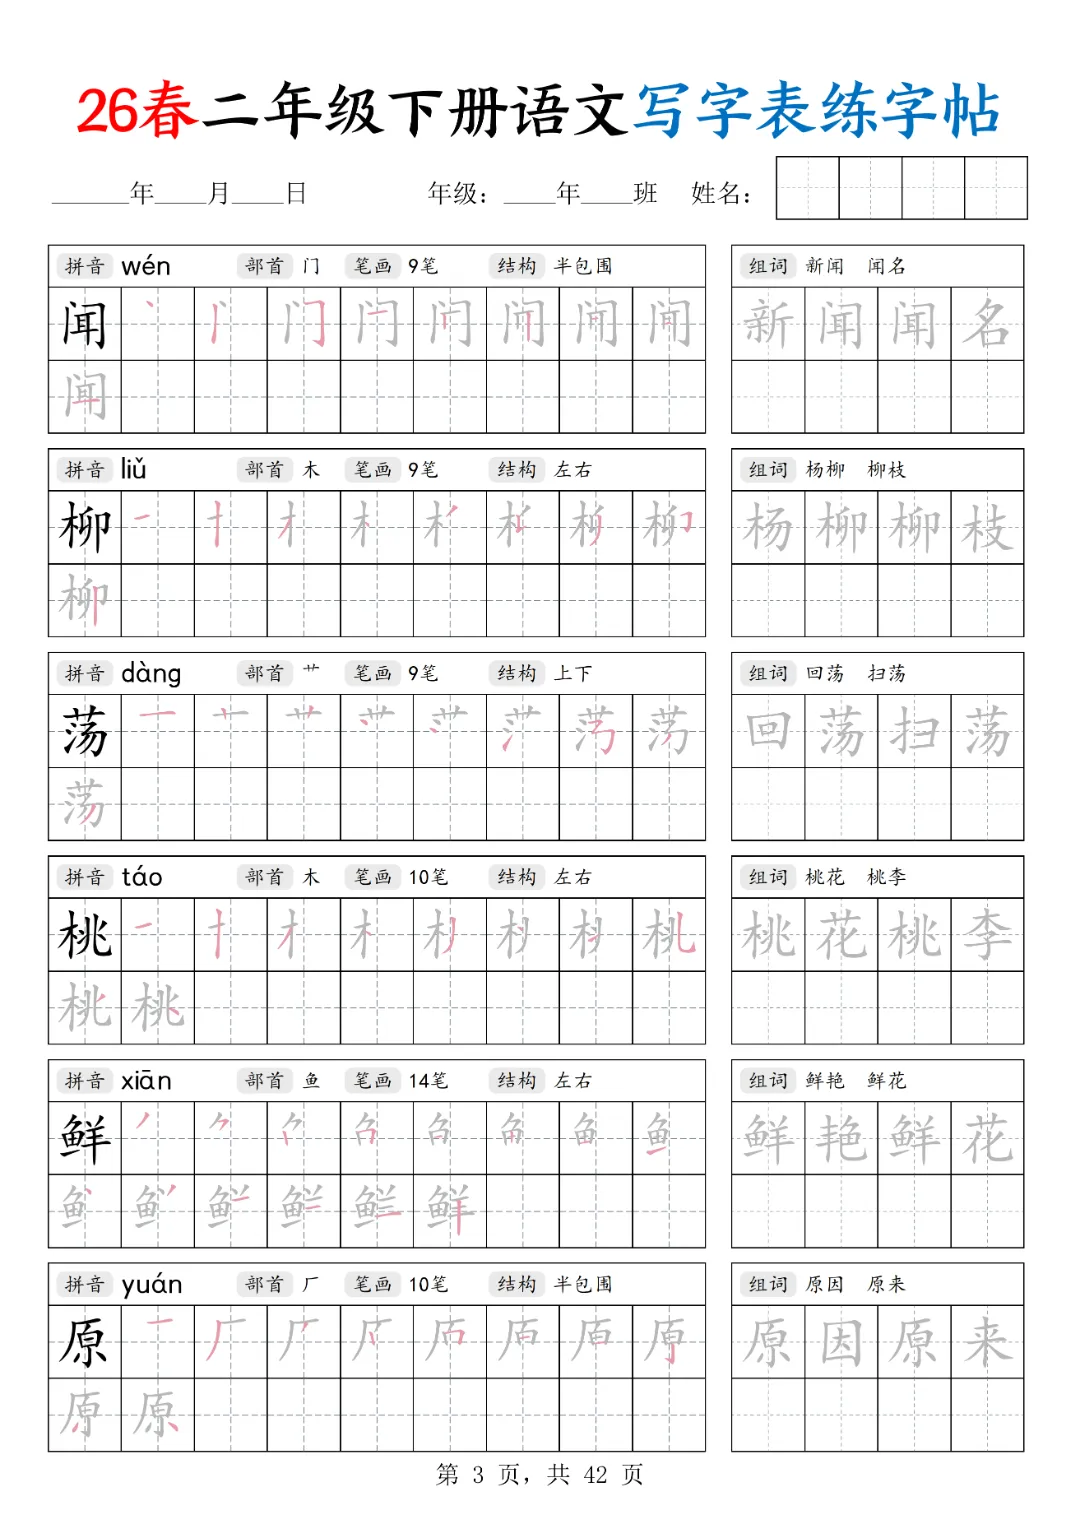 26春二年级下册语文写字表练字帖
______年____月____日 年级：____年____班 姓名：
拼音 wén 部首 门 笔画 9笔 结构 半包围 组词 新闻 闻名
闻 新 闻 闻 名
闻
拼音 liǔ 部首 木 笔画 9笔 结构 左右 组词 杨柳 柳枝
柳 杨 柳 柳 枝
柳
拼音 dàng 部首 艹 笔画 9笔 结构 上下 组词 回荡 扫荡
荡 回 荡 扫 荡
荡
拼音 táo 部首 木 笔画 10笔 结构 左右 组词 桃花 桃李
桃 桃 花 桃 李
桃 桃
拼音 xiān 部首 鱼 笔画 14笔 结构 左右 组词 鲜艳 鲜花
鲜 鲜 艳 鲜 花
鲜
拼音 yuán 部首 厂 笔画 10笔 结构 半包围 组词 原因 原来
原 原 因 原 来
原 原
第 3 页，共 42 页